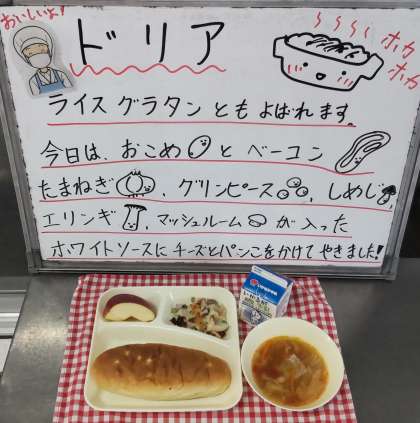 おいしいよ!
ドリア
ホカホカ
ライスグラタンともよばれます。
今日は、おこめとベーコン
たまねぎ、グリンピース、しめじ、
エリンギ、マッシュルームが入った
ホワイトソースにチーズとパンこをかけてやきました!